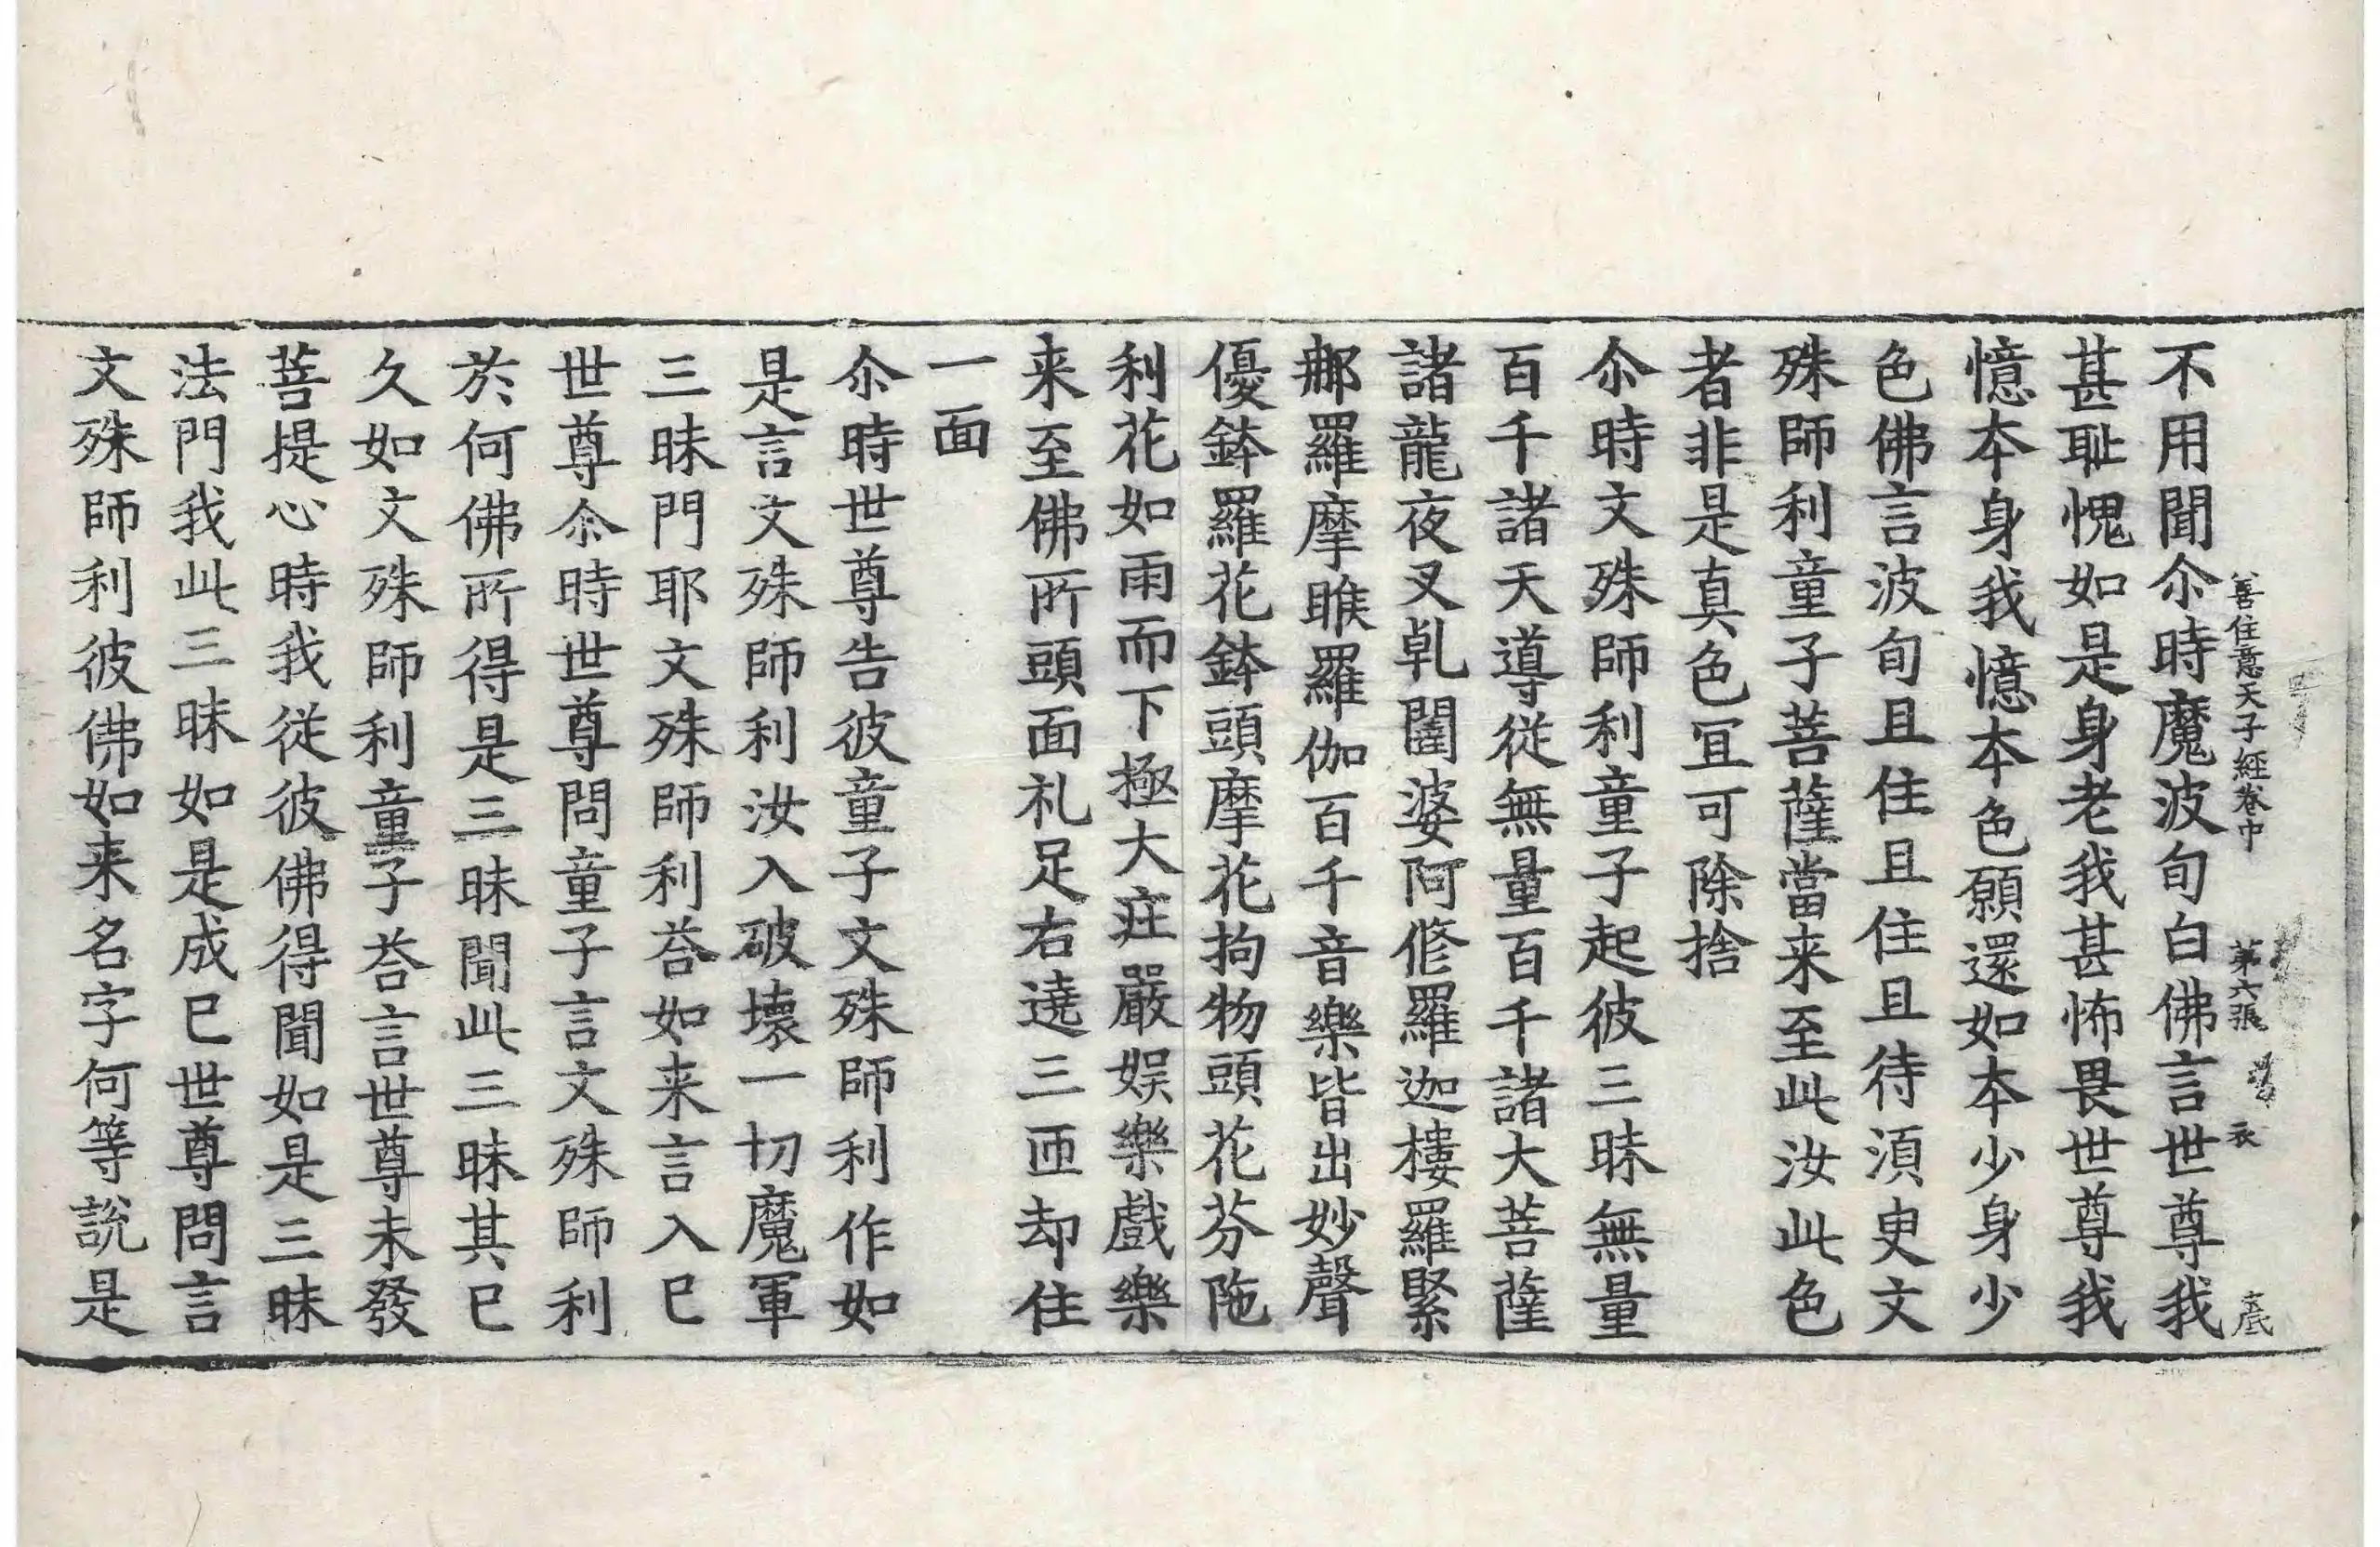 善住意天子經卷中 第六張 衣
不用聞尒時魔波旬白佛言世尊我
甚耻愧如是身老我甚怖畏世尊我
憶本身我憶本色願還如本少身少
色佛言波旬且住且住且待須臾文
殊師利童子菩薩當来至此汝此色
者非是真色冝可除捨
尒時文殊師利童子起彼三昧無量
百千諸天導從無量百千諸大菩薩
諸龍夜叉乹闥婆阿脩羅迦樓羅緊
那羅摩睺羅伽百千音樂皆出妙聲
優鉢羅花鉢頭摩花拘物頭花芬陁
利花如雨而下極大庄嚴娱樂戲樂
来至佛所頭面礼足右遶三匝却住
一面
尒時世尊告彼童子文殊師利作如
是言文殊師利汝入破壞一切魔軍
三昧門耶文殊師利荅如来言入已
世尊尒時世尊問童子言文殊師利
於何佛所得是三昧聞此三昧其已
久如文殊師利童子荅言世尊未發
菩提心時我従彼佛得聞如是三昧
法門我此三昧如是成已世尊問言
文殊師利彼佛如来名字何等說是